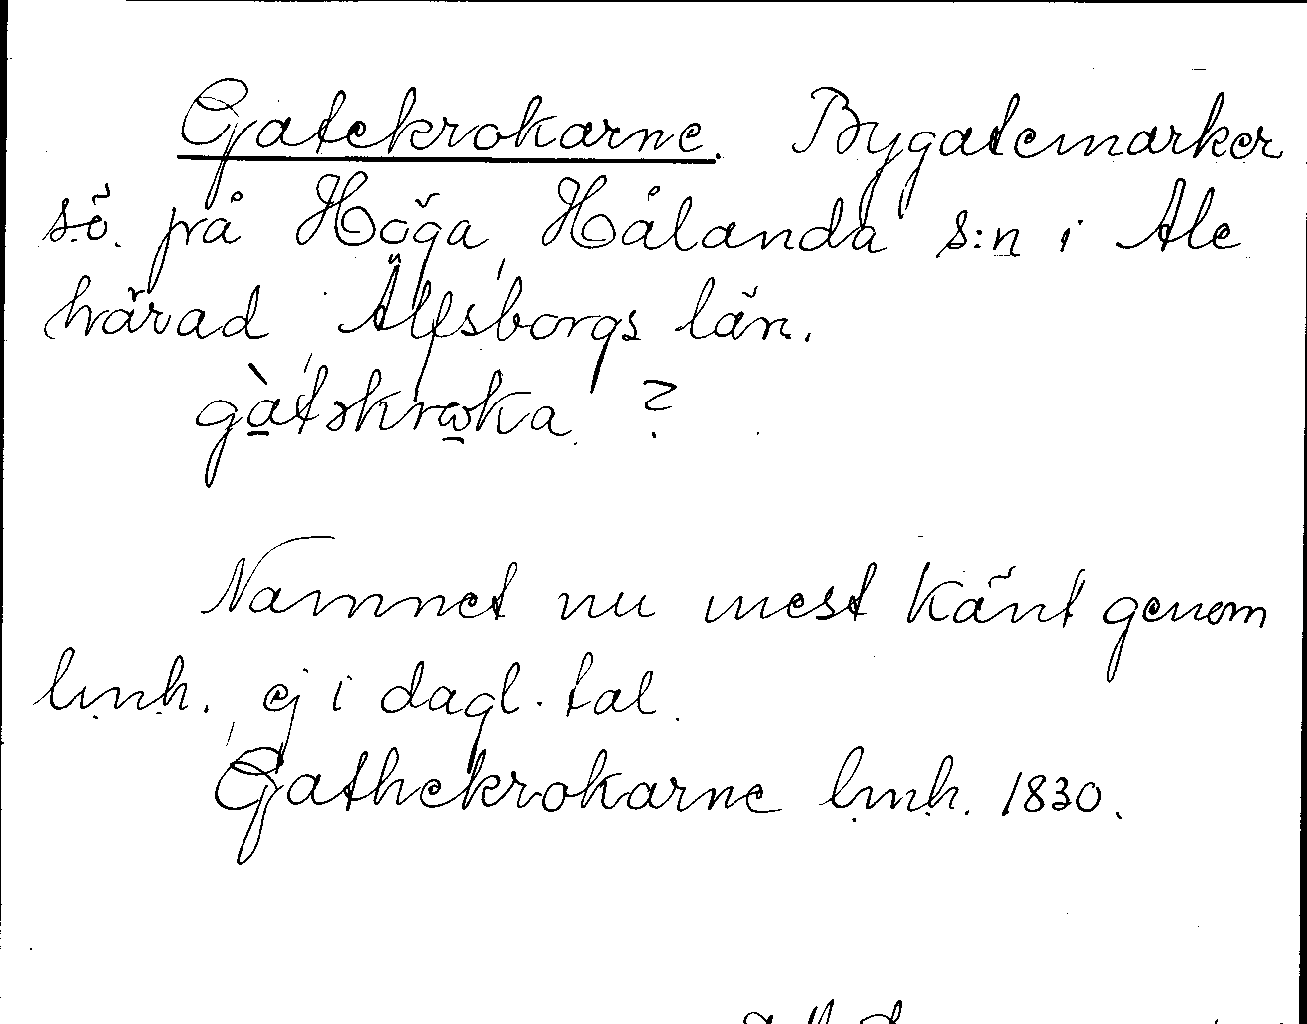 Gatekrokarne. Bygatemarker
s.ö. på Höga, Hålanda s:n i Ale
härad, Älfsborgs län.
gàtəkrωka ?
Namnet nu mest känt genom
lmh., ej i dagl. tal.
Gathekrokarne lmh. 1830.